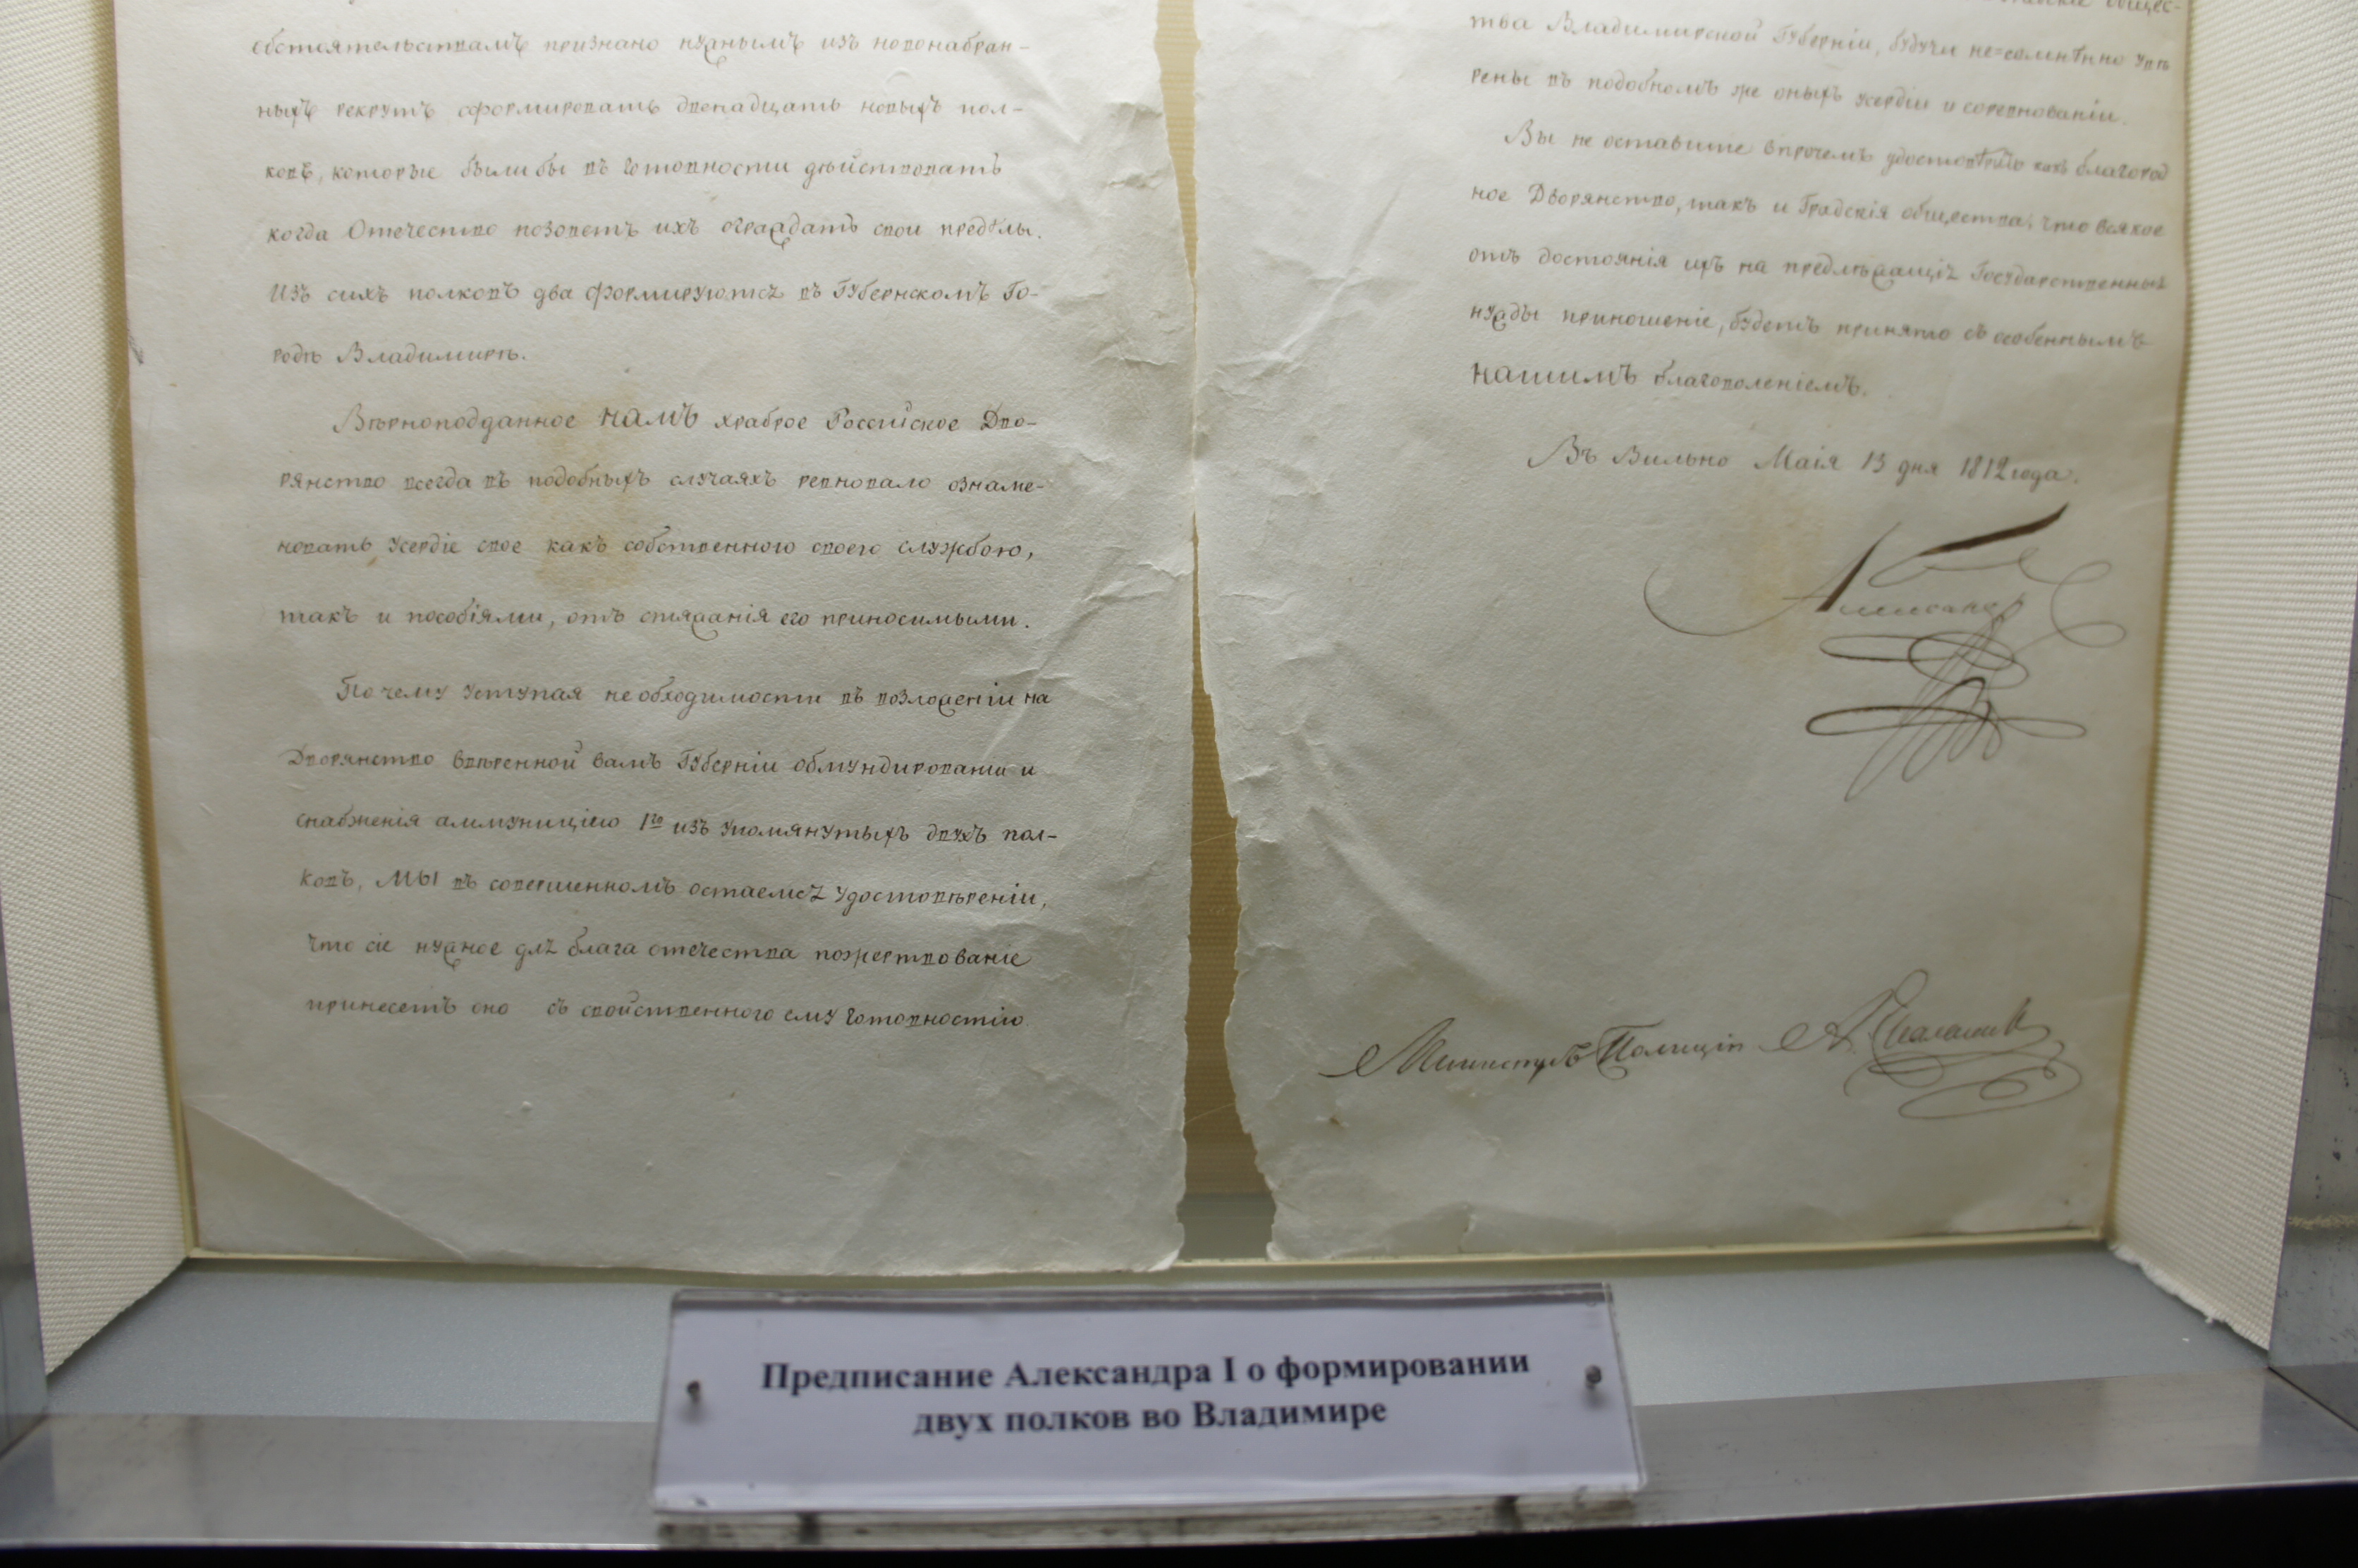 обстоятельствамъ признано нужнымъ изъ новонабран-
ныхъ рекрутъ сформировать двенадцать новыхъ пол-
ковъ, которые были бы въ готовности дѣйствовать
когда Отечество позоветъ ихъ ограждать свои предѣлы.
Изъ сихъ полковъ два формируются въ Губернскомъ Го-
родѣ Владимирѣ.
Вѣрноподданное НАМЪ храброе Россiйское Дво-
рянство всегда въ подобныхъ случаяхъ ревновало ознаме-
новать усердiе свое какъ собственною своею службою,
такъ и пособiями, отъ стяжанiя его приносимыми.
По чему уступая необходимости въ возложенiи на
Дворянство ввѣренной вамъ Губернiи обмундированiи и
снабженiя аммуницiею 1го изъ упомянутыхъ двухъ пол-
ковъ, МЫ въ совершенномъ остаемся удостовѣренiи,
что сiе нужное для блага отечества пожертвованiе
принесетъ оно съ свойственного ему готовностiю
общес-
тва Владимирской Губернiи, будучи не=сомнѣнно увѣ
рены въ подобномъ же оныхъ усердiи и соревнованiи.
Вы не оставите впрочемъ удостовѣрить какъ благород
ное Дворянство, такъ и Градскiя общества, что всякое
отъ достоянiя ихъ на предлѣжащiя Государственныя
нужды приношенiе, будетъ принято съ особеннымъ
НАШИМЪ благоволенiемъ.
Въ Вильно Маiя 13 дня 1812 года.
Александръ
Министръ Полицiи А. Балашовъ
Предписание Александра I о формировании
двух полков во Владимире